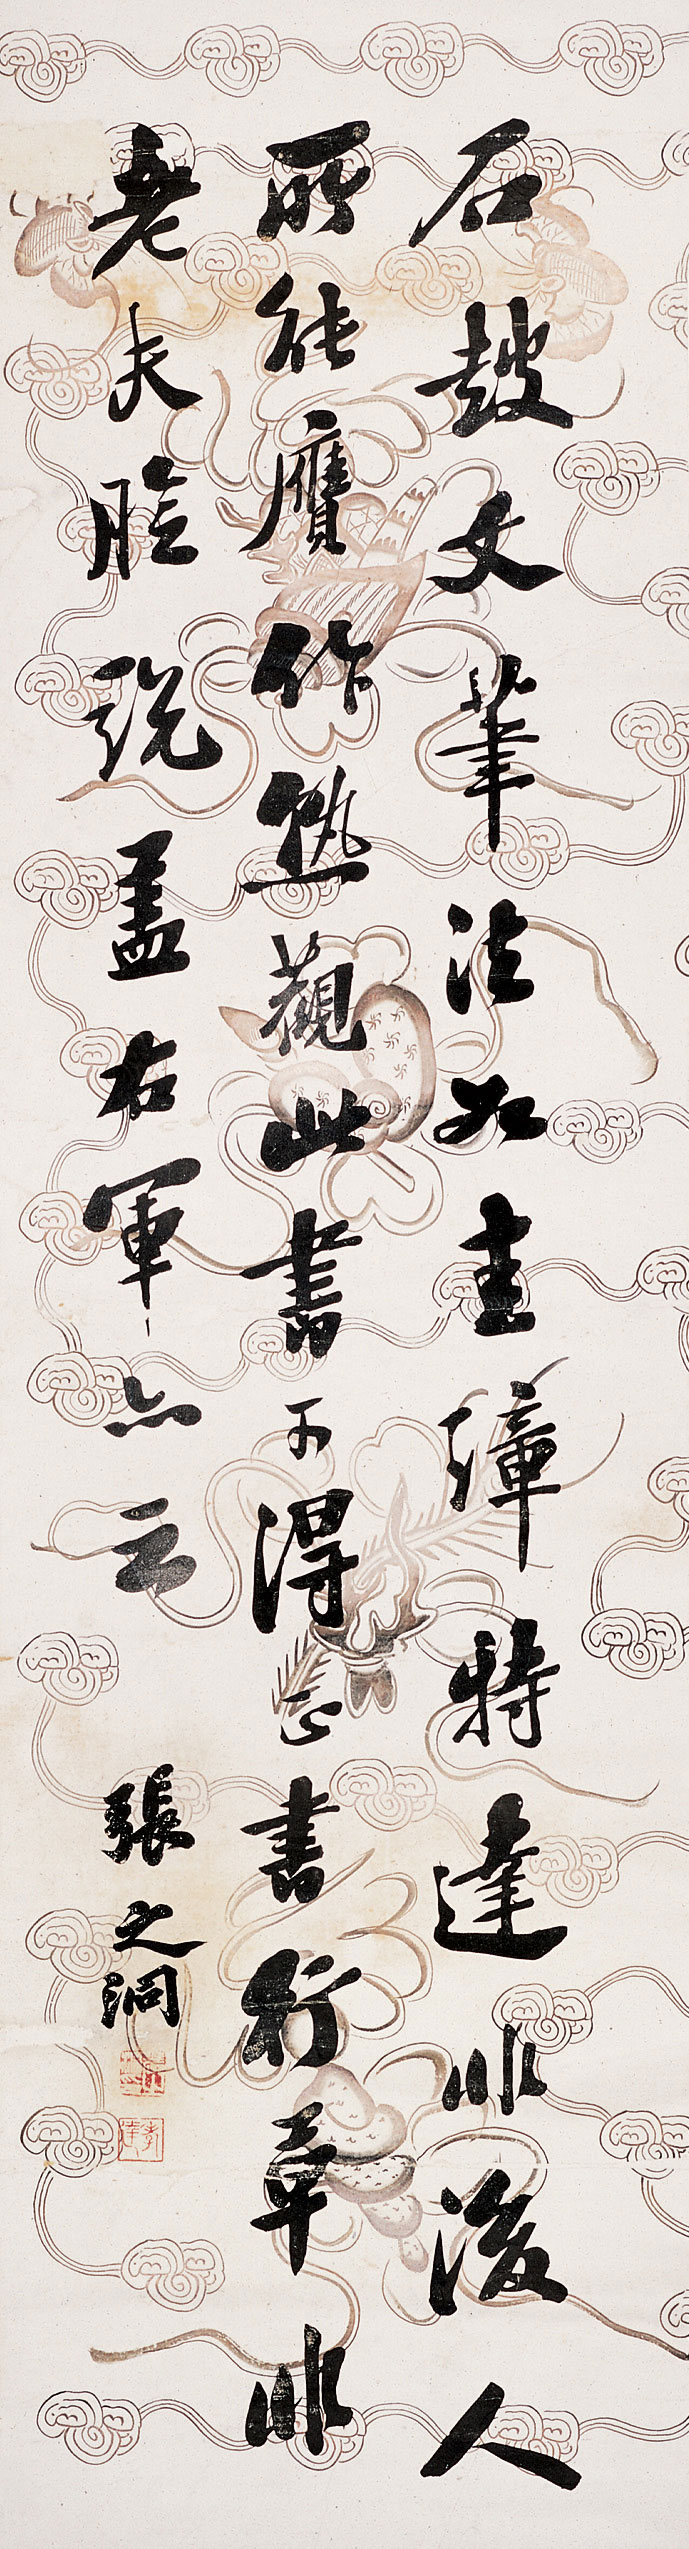 石鼓文筆法如圭璋特達非後人
所能贗作熟觀此書可得正書行章非
老夫臆說蓋右軍亦云
張之洞
孝達